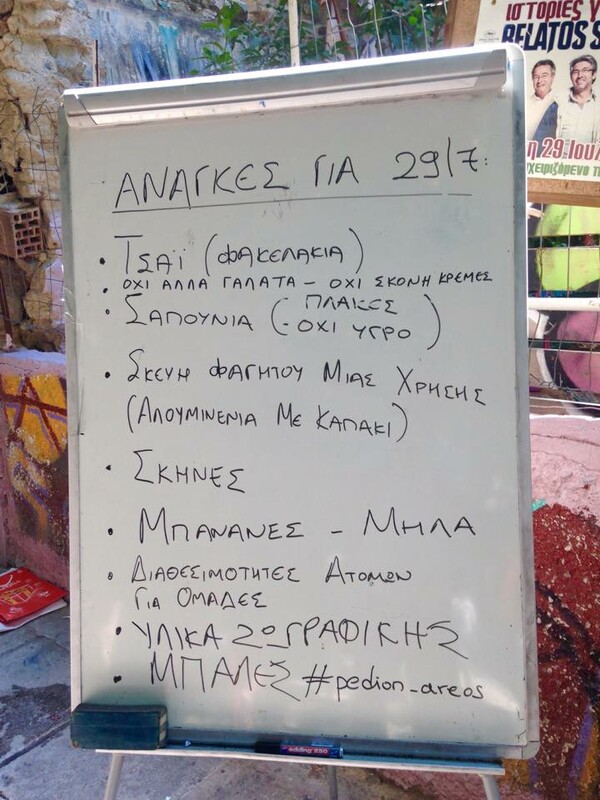 ΙΣΤΟΡΙΕΣ Υ
RELATOS S
η 29 Ιουλ
χειριζόμενο τ
ΑΝΑΓΚΕΣ ΓΙΑ 29/7:
• ΤΣΑΪ (ΦΑΚΕΛΑΚΙΑ)
• ΟΧΙ ΑΛΛΑ ΓΑΛΑΤΑ - ΟΧΙ ΣΚΟΝΗ ΚΡΕΜΕΣ
• ΣΑΠΟΥΝΙΑ (- ΠΛΑΚΕΣ
- ΟΧΙ ΥΓΡΟ)
• ΣΚΕΥΗ ΦΑΓΗΤΟΥ ΜΙΑΣ ΧΡΗΣΗΣ
(ΑΛΟΥΜΙΝΕΝΙΑ ΜΕ ΚΑΠΑΚΙ)
• ΣΚΗΝΕΣ
• ΜΠΑΝΑΝΕΣ - ΜΗΛΑ
• ΔΙΑΘΕΣΙΜΟΤΗΤΕΣ ΑΤΟΜΩΝ
ΓΙΑ ΟΜΑΔΕΣ
• ΥΛΙΚΑ ΖΩΓΡΑΦΙΚΗΣ
• ΜΠΑΛΕΣ #pedion_areos
edding 250